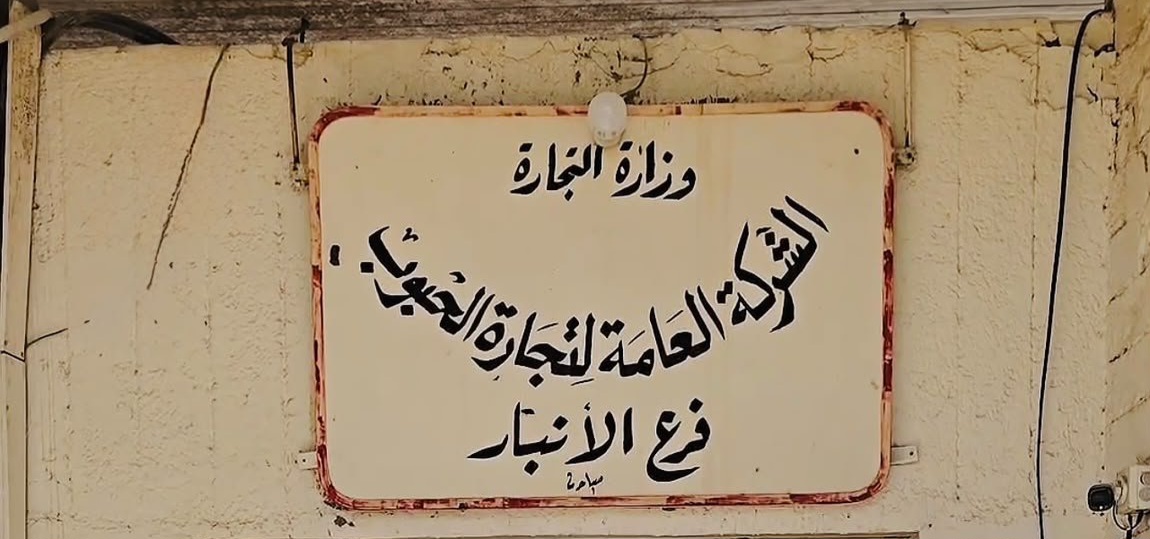 وزارة التجارة
الشركة العامة لتجارة الحبوب
فرع الأنبار